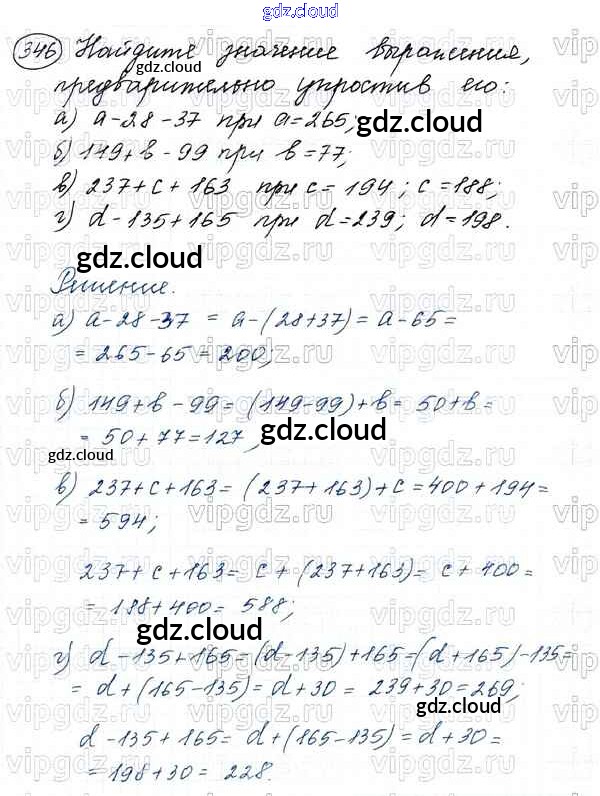 gdz.cloud
346 Найдите значение выражения,
gdz.cloud
предварительно упростив его:
а) a-28-37 при a=265;
gdz.cloud
б) 149+b-99 при b=77;
в) 237+c+163 при c=194; c=188;
г) d-135+165 при d=239; d=198.
gdz.cloud
Решение.
а) a-28-37 = a-(28+37) = a-65=
= 265-65=200;
б) 149+b-99= (149-99)+b= 50+b=
= 50+77=127,
gdz.cloud
gdz.cloud
в) 237+c+163= (237+163)+c=400+194=
= 594;
237+c+163= c+(237+163)= c+400=
= 188+400= 588;
gdz.cloud
г) d-135+165=(d-135)+165=(d+165)-135=
= d+(165-135)= d+30= 239+30=269;
d-135+165= d+(165-135)=d+30=
= 198+30= 228.
gdz.cloud
vipgdz.ru